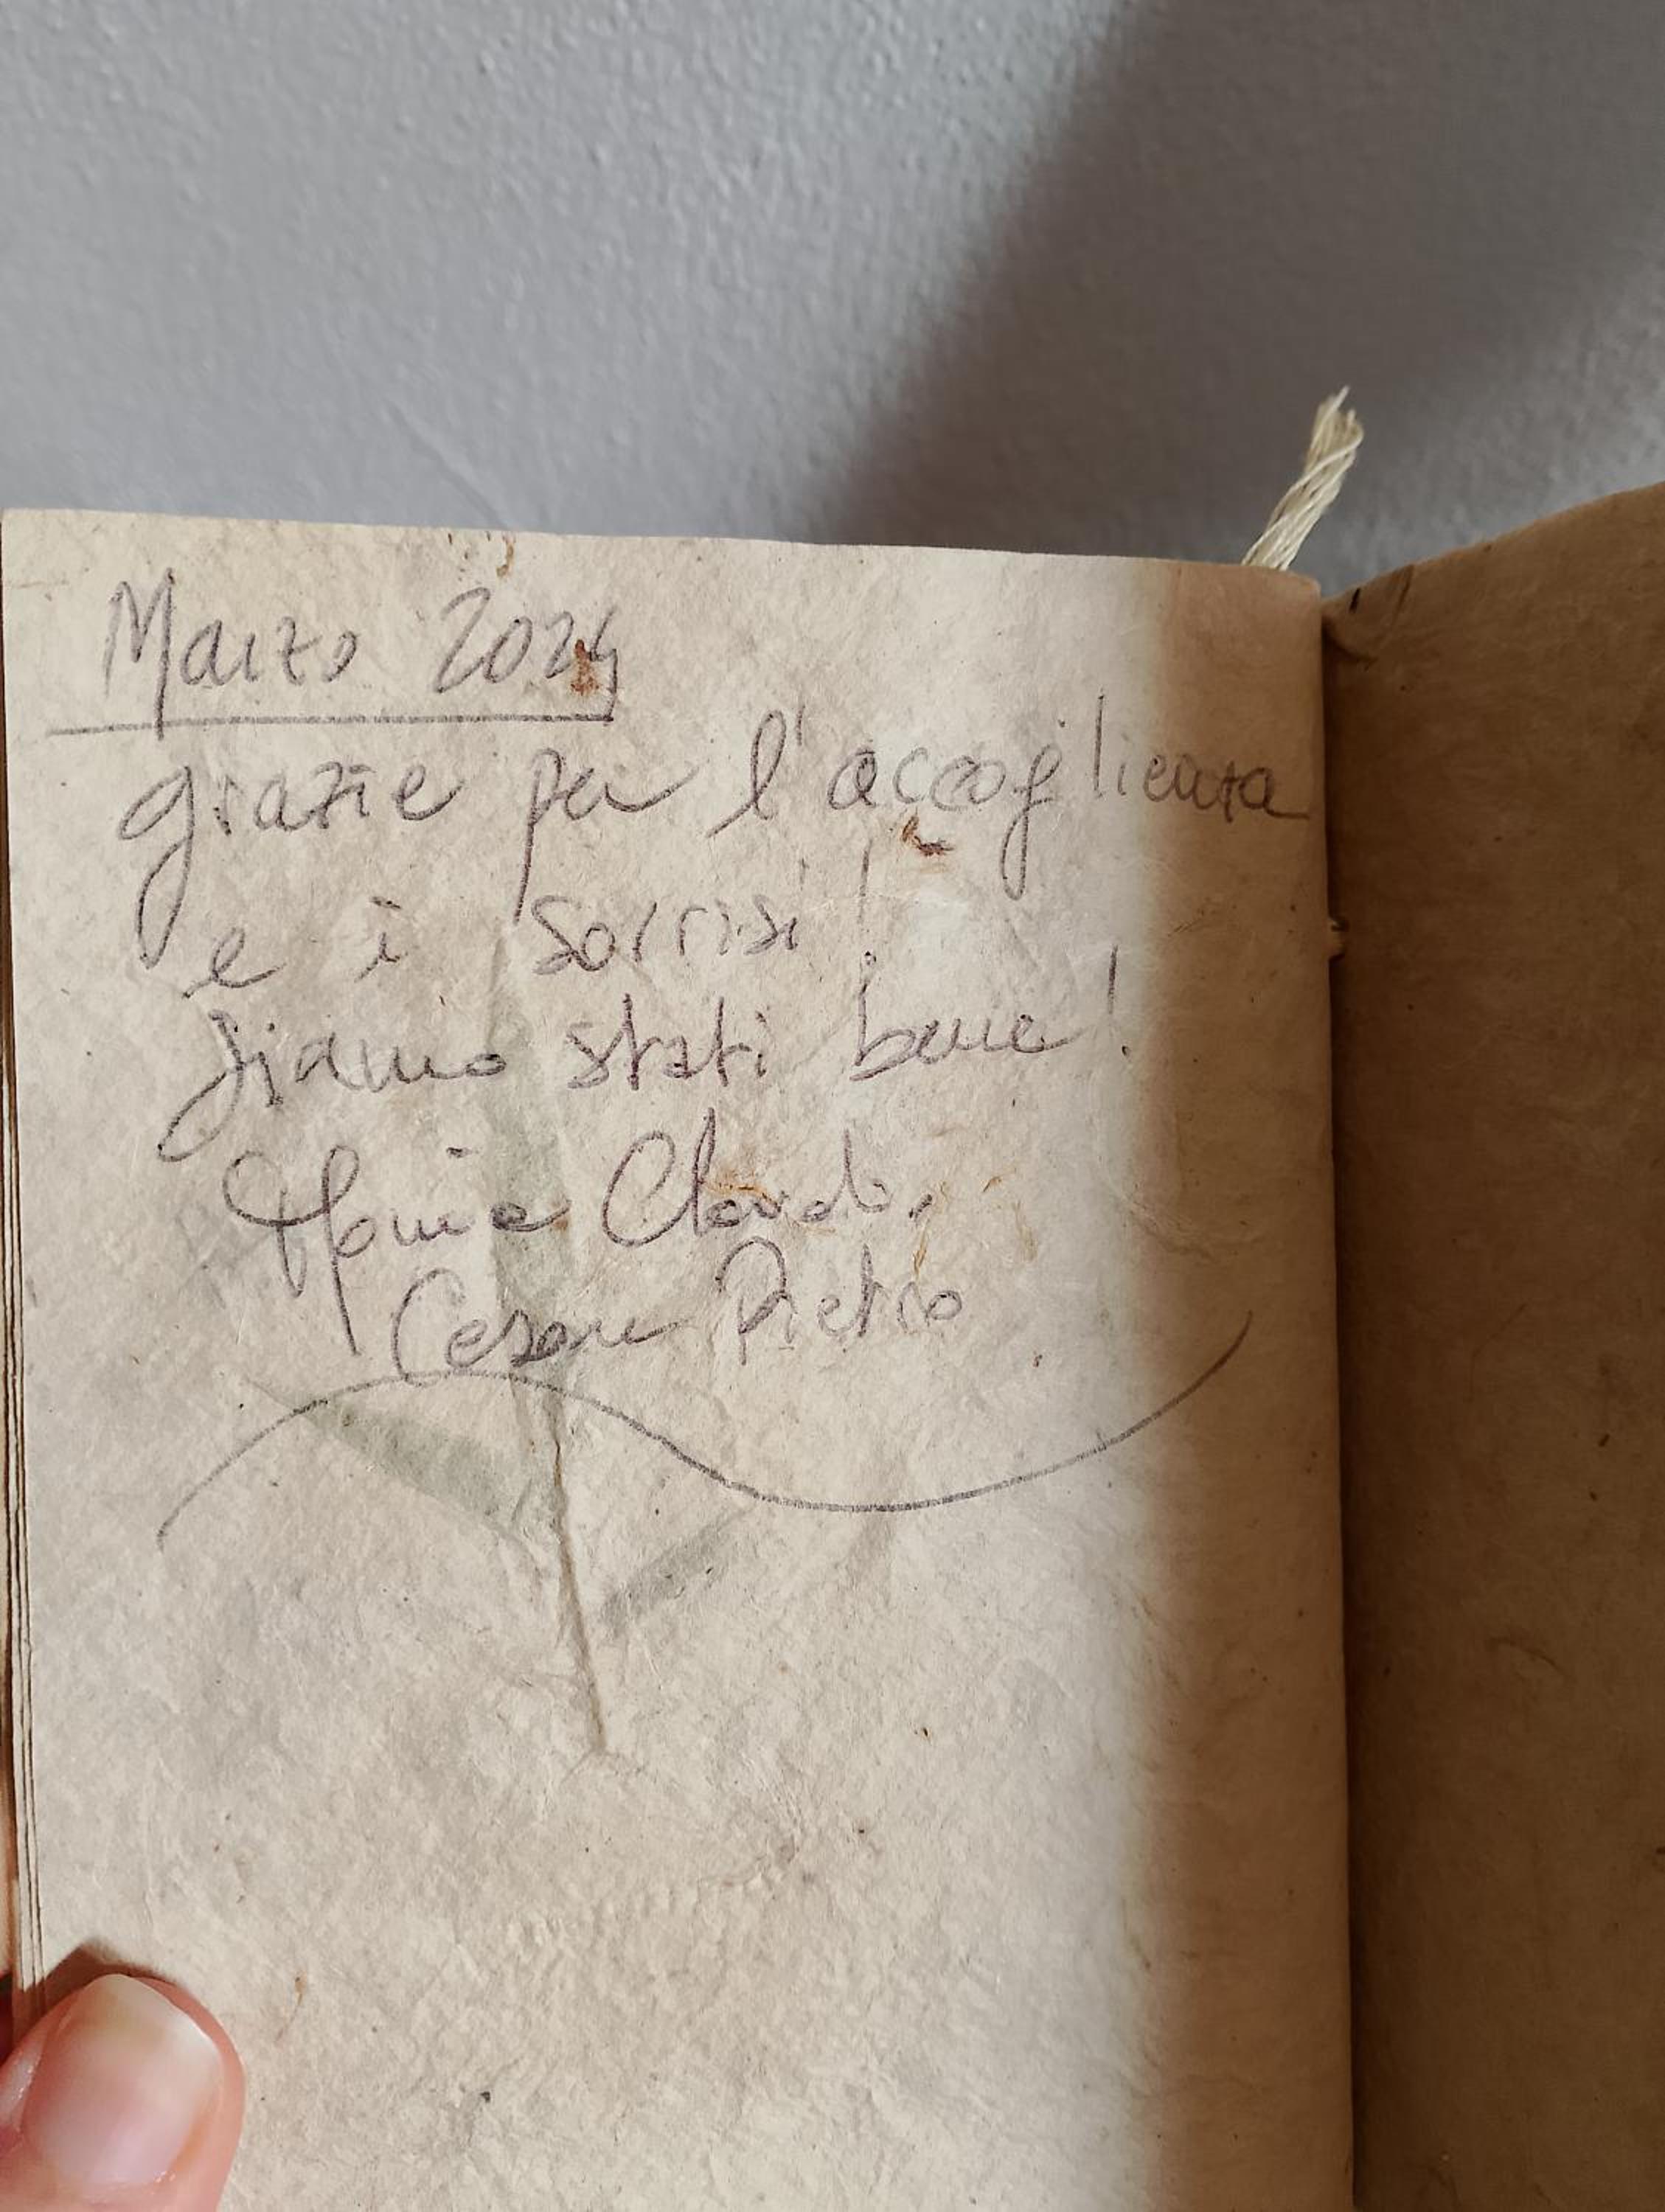 Marzo 2024
grazie per l'accoglienza
e i sorrisi!
Siamo stati bene!
Claudio,
Cesare Pietro